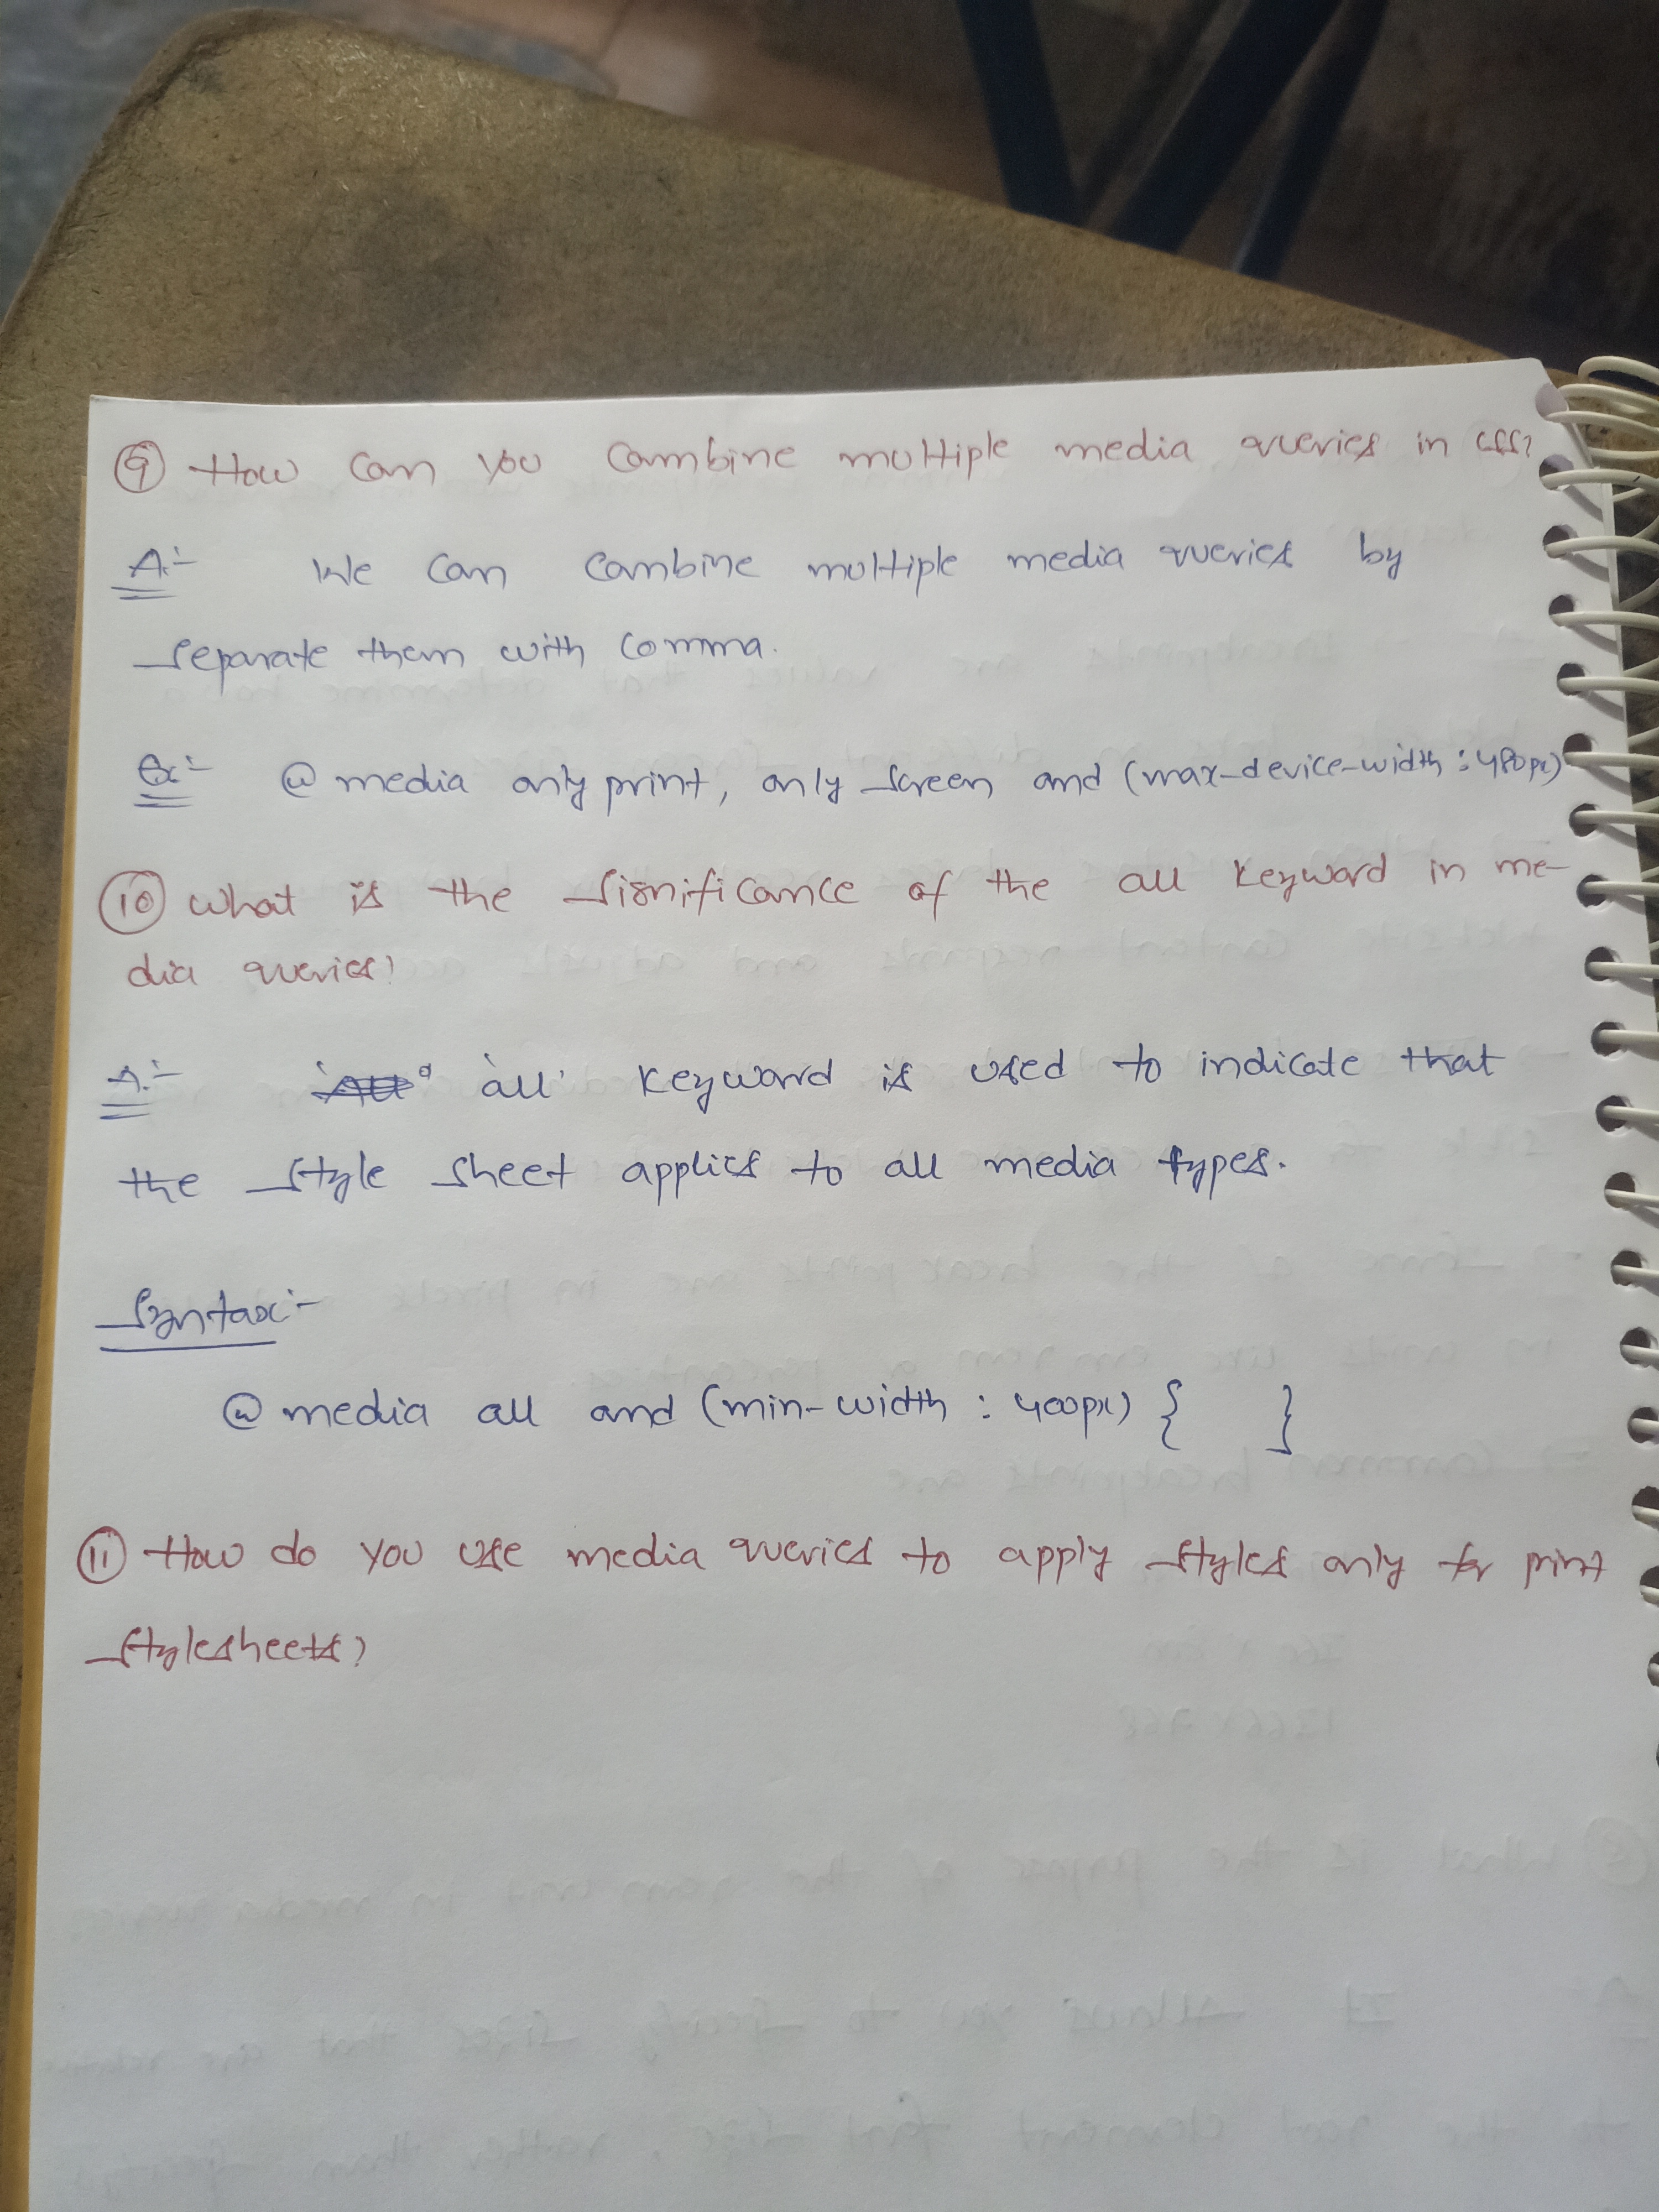 9 How can you combine multiple media queries in css?
A:- We can combine multiple media queries by
separate them with comma.
Ex:- @media only print, only screen and (max-device-width : 480px)
10 What is the significance of the all keyword in me-
dia queries?
A:- 'all' keyword is used to indicate that
the style sheet applies to all media types.
Syntax:-
@media all and (min-width : 400px) { }
11 How do you use media queries to apply styles only for print
stylesheets?